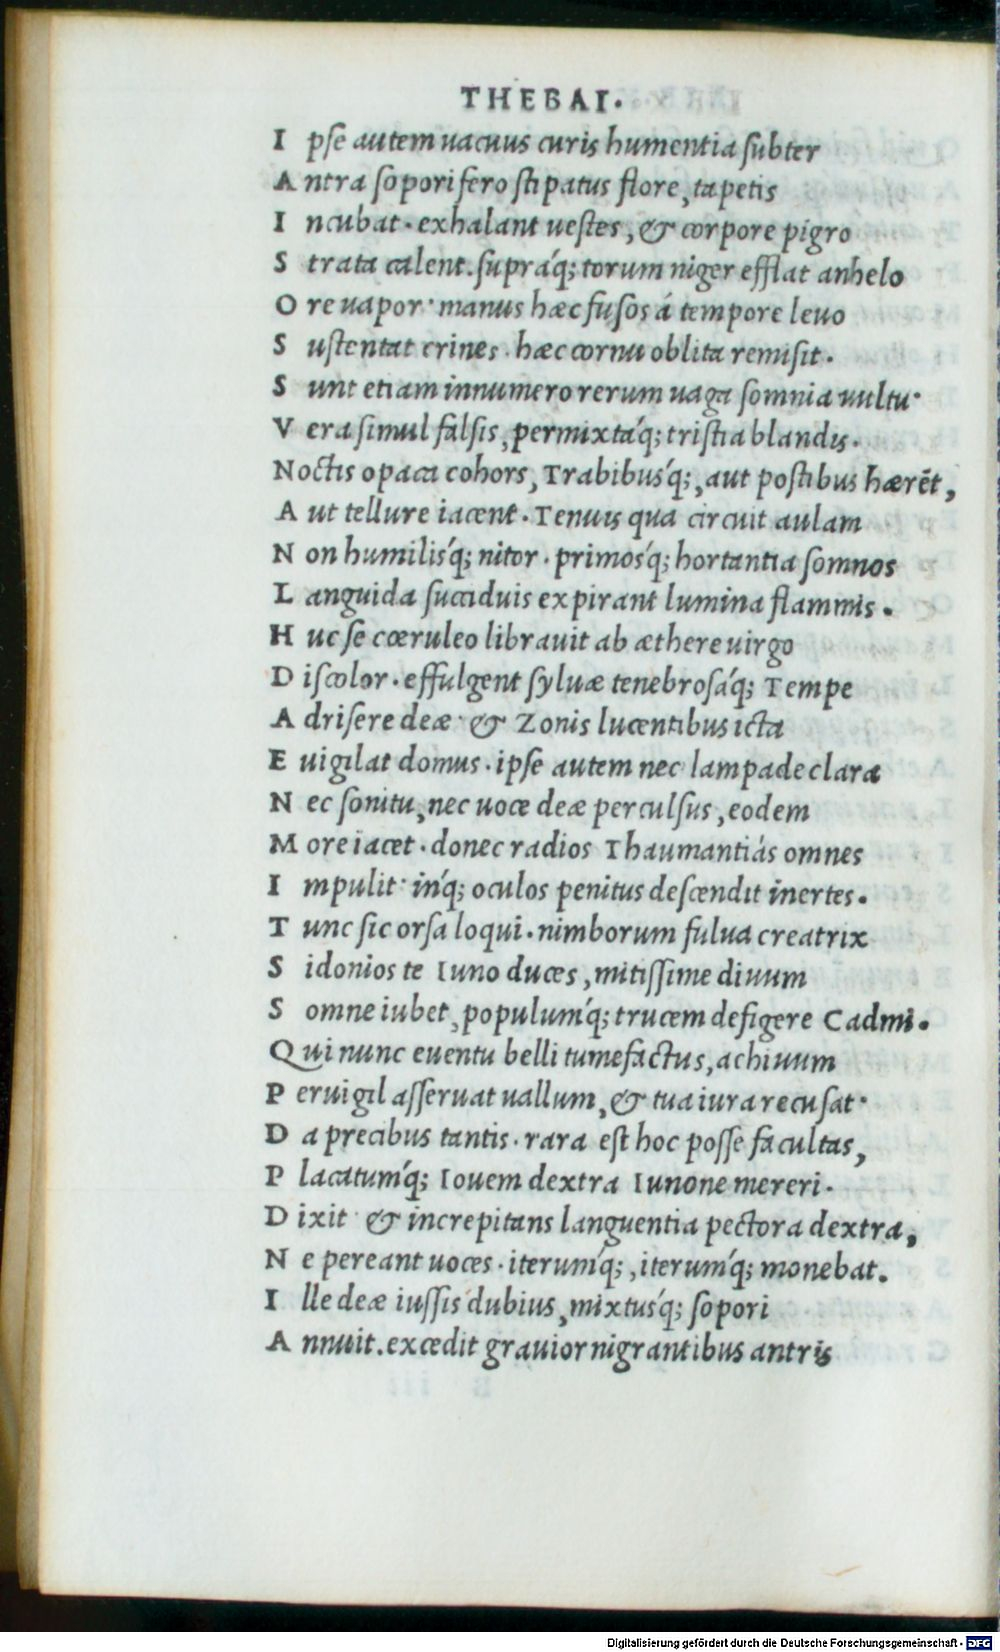 THEBAI.
I pse autem uacuus curis humentia subter
A ntra soporifero stipatus flore, tapetis
I ncubat. exhalant uestes, & corpore pigro
S trata calent. supráq; torum niger efflat anhelo
O re uapor. manus hæc fusos á tempore leuo
S ustentat crines. hæc cornu oblita remisit.
S unt etiam innumero rerum uaga somnia uultu.
V era simul falsis, permixtáq; tristia blandis.
Noctis opaca cohors, Trabibusq́;, aut postibus hærẽt,
A ut tellure iacent. Tenuis qua circuit aulam
N on humilisq́; nitor. primosq́; hortantia somnos
L anguida succiduis expirant lumina flammis.
H uc se cœruleo librauit ab æthere uirgo
D iscolor. effulgent syluæ tenebrosáq; Tempe
A drisere deæ. & Zonis lucentibus icta
E uigilat domus. ipse autem nec lampade clara
N ec sonitu, nec uoce deæ perculsus, eodem
M ore iacet. donec radios Thaumantiás omnes
I mpulit. inq́; oculos penitus descendit inertes.
T unc sic orsa loqui. nimborum fulua creatrix
S idonios te Iuno duces, mitissime diuum
S omne iubet, populumq́; trucem defigere Cadmi.
Q ui nunc euentu belli tumefactus, achiuum
P eruigil asseruat uallum, & tua iura recusat.
D a precibus tantis. rara est hoc posse facultas,
P lacatumq́; Iouem dextra Iunone mereri.
D ixit. & increpitans languentia pectora dextra,
N e pereant uoces. iterumq́;, iterumq́; monebat.
I lle deæ iussis dubius, mixtusq́; sopori
A nnuit. excedit grauior nigrantibus antris
Digitalisierung gefördert durch die Deutsche Forschungsgemeinschaft - DFG